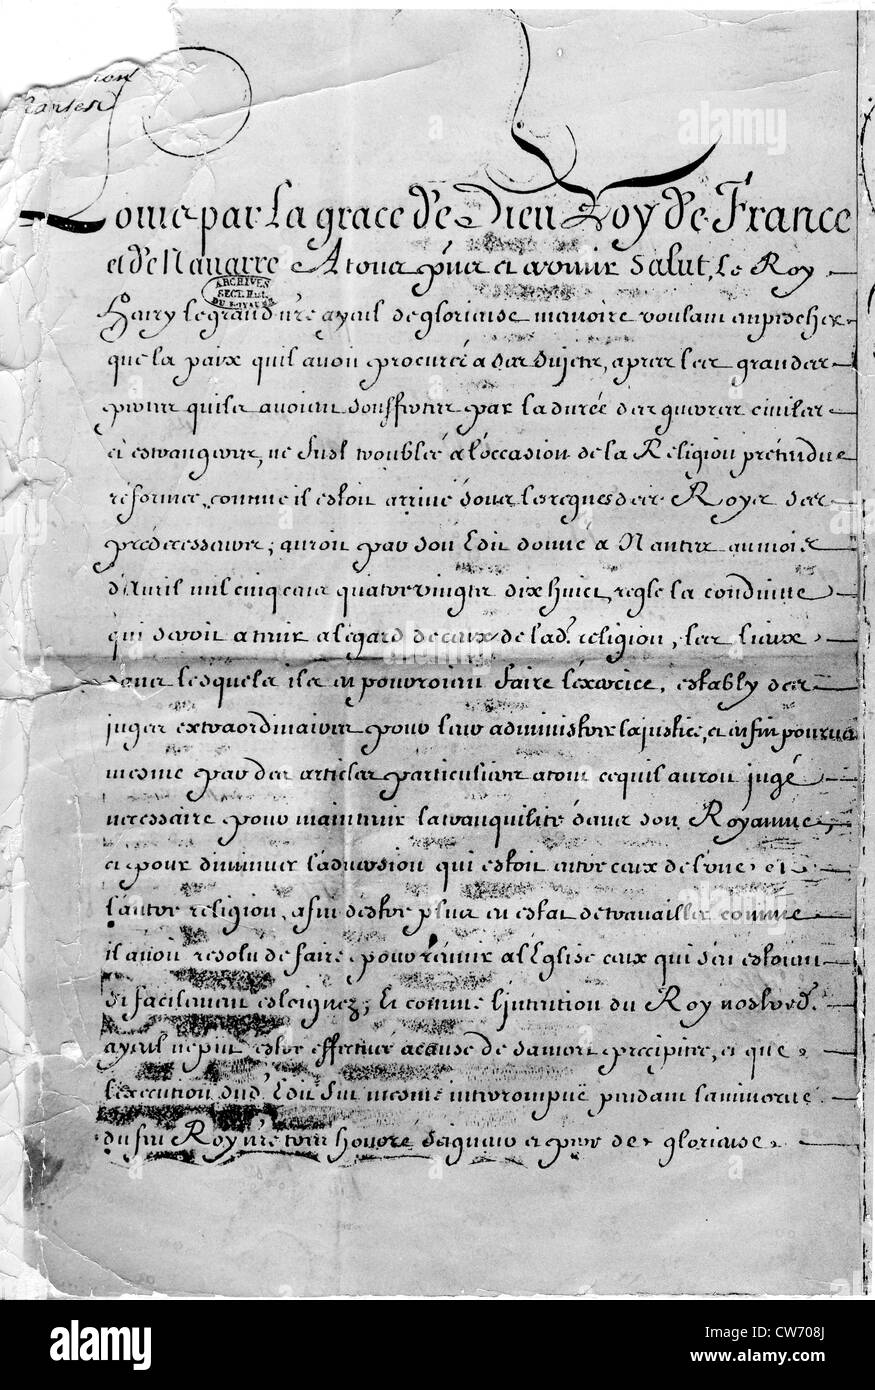 Louis par la grace de Dieu Roy de France
et de Navarre A tous p̃ns et avenir salut, Le Roy
Henry le grand n̄re ayeul de glorieuse memoire voulant empescher
que la paix qu'il avoit procurée a ses sujets, apres les grandes
pertes qu'ils avoient souffertes par la durée des guerres civiles
et estrangeres, ne fust troublée a l'occasion de la Religion prétendue
réformée, comme il estoit arrivé sous les regnes des Roys ses
prédecesseurs; auroit par son Edit donné a Nantes au mois
d'Avril mil cinq cens quatre vingts dix huict, reglé la conduitte
qui devoit a tenir a l'égard de ceux de lad. religion, les lieux
dans lesquels ils en pouvroient faire l'éxercice, estably des
juges extraordinaires pour leur administrer la justice, et enfin pourveu
mesme par des articles particuliers a tout ce qu'il auroit jugé
necessaire pour maintenir la tranquilité dans son Royaume,
et pour diminuer l'aduersion qui estoit entre ceux de l'une et
l'autre religion, afin d'estre plus en estat de travailler comme
il avoit resolu de faire pour réunir a l'Eglise ceux qui s'en estoient
si facilement esloignez; Et comme l'intention du Roy nostred.
ayeul ne put estre effectuée a cause de sa mort précipitée, et que
l'execution dud. Edit fut mesme interrompuë pendant la minorité
du feu Roy n̄re tres honoré seigneur et pere de glorieuse
ARCHIVES
SECT. HIST.
alamy
alamy
Image ID: CW708J
www.alamy.com